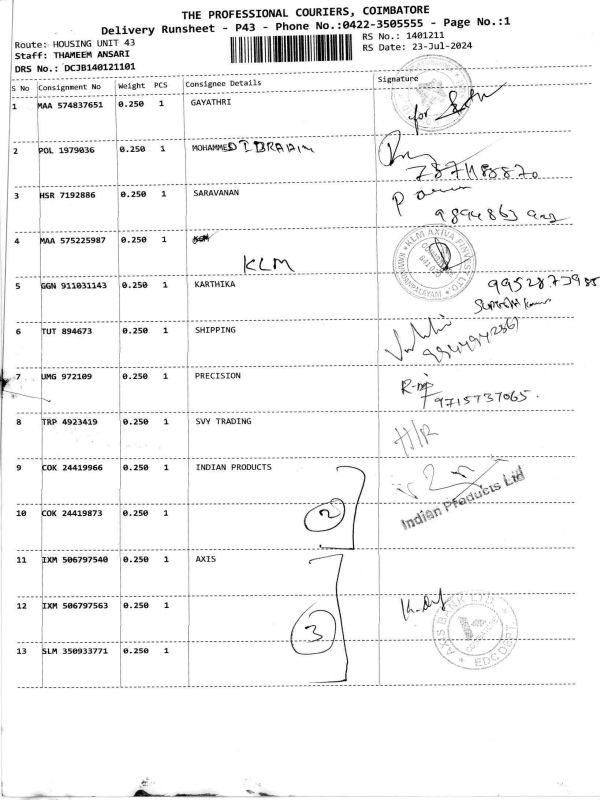 THE PROFESSIONAL COURIERS, COIMBATORE
Delivery Runsheet - P43 - Phone No.:0422-3505555 - Page No.:1
Route: HOUSING UNIT 43
RS No.: 1401211
Staff: THAMEEM ANSARI
RS Date: 23-Jul-2024
DRS No.: DCJB140121101
S No Consignment No Weight PCS Consignee Details Signature
1 MAA 574837651 0.250 1 GAYATHRI
for
2 POL 1979036 0.250 1 MOHAMMED IBRAHIM
3 HSR 7192886 0.250 1 SARAVANAN
4 MAA 575225987 0.250 1
KLM
KLM AXIVA FINVEST LTD.
5 GGN 911031143 0.250 1 KARTHIKA
6 TUT 894673 0.250 1 SHIPPING
7 UMG 972109 0.250 1 PRECISION
9715737065.
8 TRP 4923419 0.250 1 SVY TRADING
H/R
9 COK 24419966 0.250 1 INDIAN PRODUCTS
Indian Products Ltd
10 COK 24419873 0.250 1
2
11 IXM 506797540 0.250 1 AXIS
12 IXM 506797563 0.250 1
3
AXIS BANK LTD.
EDC DEPT.
13 SLM 350933771 0.250 1